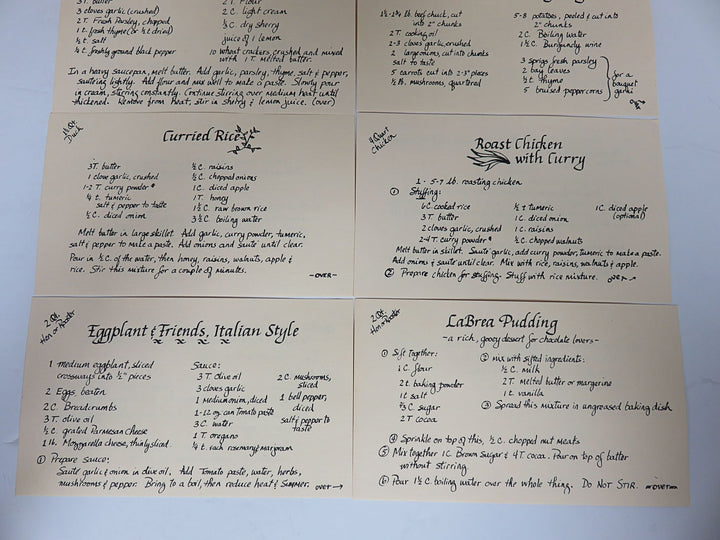 3 T. butter
3 cloves garlic (crushed)
2 T. Fresh Parsley, chopped
1 t. fresh thyme (or ½ t dried)
½ t. salt
¼ t. freshly ground black pepper
2 T. Flour
2 C. light cream
⅓ C. dry sherry
juice of 1 lemon
10 wheat crackers, crushed and mixed
with 1 T. melted butter.
In a heavy saucepan, melt butter. Add garlic, parsley, thyme, salt & pepper,
sautéing lightly. Add flour and mix well to make a paste. Slowly pour
in cream, stirring constantly. Continue stirring over medium heat until
thickened. Remove from heat, stir in sherry & lemon juice. (over)
1½-1¾ lb. beef chuck, cut
into 2" chunks
2 T. cooking oil
2-3 cloves garlic, crushed
2 large onions, cut into chunks
salt to taste
5 carrots cut into 2-3" pieces
½ lb. mushrooms, quartered
5-8 potatoes, peeled & cut into
2" chunks
2 C. Boiling water
1½ C. Burgundy wine
3 sprigs fresh parsley
2 bay leaves
½ t. thyme
5 bruised peppercorns
for a
bouquet
garni
over
Duck
Curried Rice
3 T. butter
1 clove garlic, crushed
1-2 T. curry powder*
¼ t. tumeric
salt & pepper to taste
½ C. diced onion
½ C. raisins
½ C. chopped onions
1 C. diced apple
1 T. honey
1½ C. raw brown rice
3½ C. boiling water
Melt butter in large skillet. Add garlic, curry powder, tumeric,
salt & pepper to make a paste. Add onions and sauté until clear.
Pour in ½ C. of the water, then honey, raisins, walnuts, apple &
rice. Stir this mixture for a couple of minutes.
-OVER-
4 Quart
Chicken
Roast Chicken
with Curry
1 - 5-7 lb. roasting chicken
① Stuffing:
6 C. cooked rice
3 T. butter
2 cloves garlic, crushed
2-4 T. curry powder*
½ t tumeric
1 C. diced onion
1 C. raisins
½ C. chopped walnuts
1 C. diced apple
(optional)
Melt butter in skillet. Sauté garlic, add curry powder, tumeric to make a paste.
Add onions & sauté until clear. Mix with rice, raisins, walnuts & apple.
② Prepare chicken for stuffing. Stuff with rice mixture.
over →
2 Qt.
Hen or Rooster
Eggplant & Friends, Italian Style
x x x x
1 medium eggplant, sliced
crossways into ½" pieces
2 Eggs, beaten
2 C. Breadcrumbs
3 T. olive oil
½ C. grated Parmesan Cheese
1 lb. Mozzarella cheese, thinly sliced.
Sauce:
3 T. olive oil
3 cloves garlic
1 Medium onion, diced
1-12 oz. can Tomato paste
3 C. water
1 T. oregano
¼ t. each rosemary & marjoram
2 C. Mushrooms,
sliced
1 bell pepper,
diced
salt & pepper to
taste
① Prepare Sauce:
Sauté garlic & onion in olive oil. Add Tomato paste, water, herbs,
mushrooms & pepper. Bring to a boil, then reduce heat & simmer.
over →
2 Qt.
Hen or Rooster
LaBrea Pudding
~a rich, gooey dessert for chocolate lovers~
① Sift Together:
1 C. flour
2 t. baking powder
1 t. salt
⅔ C. sugar
2 T. cocoa
② Mix with sifted ingredients:
½ C. milk
2 T. Melted butter or margerine
1 t. vanilla
③ Spread this mixture in ungreased baking dish.
④ Sprinkle on top of this, ½ C. chopped nut meats
⑤ Mix together 1 C. Brown Sugar & 4 T. cocoa. Pour on top of batter
without stirring
⑥ Pour 1½ C. boiling water over the whole thing. DO NOT STIR.
OVER